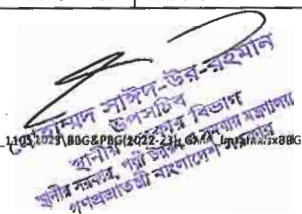 মোহাম্মদ সাঈদ-উর-রহমান
উপসচিব
স্থানীয় সরকার বিভাগ
স্থানীয় সরকার, পল্লী উন্নয়ন ও সমবায় মন্ত্রণালয়
গণপ্রজাতন্ত্রী বাংলাদেশ সরকার
BBG&PBG(2022-23)